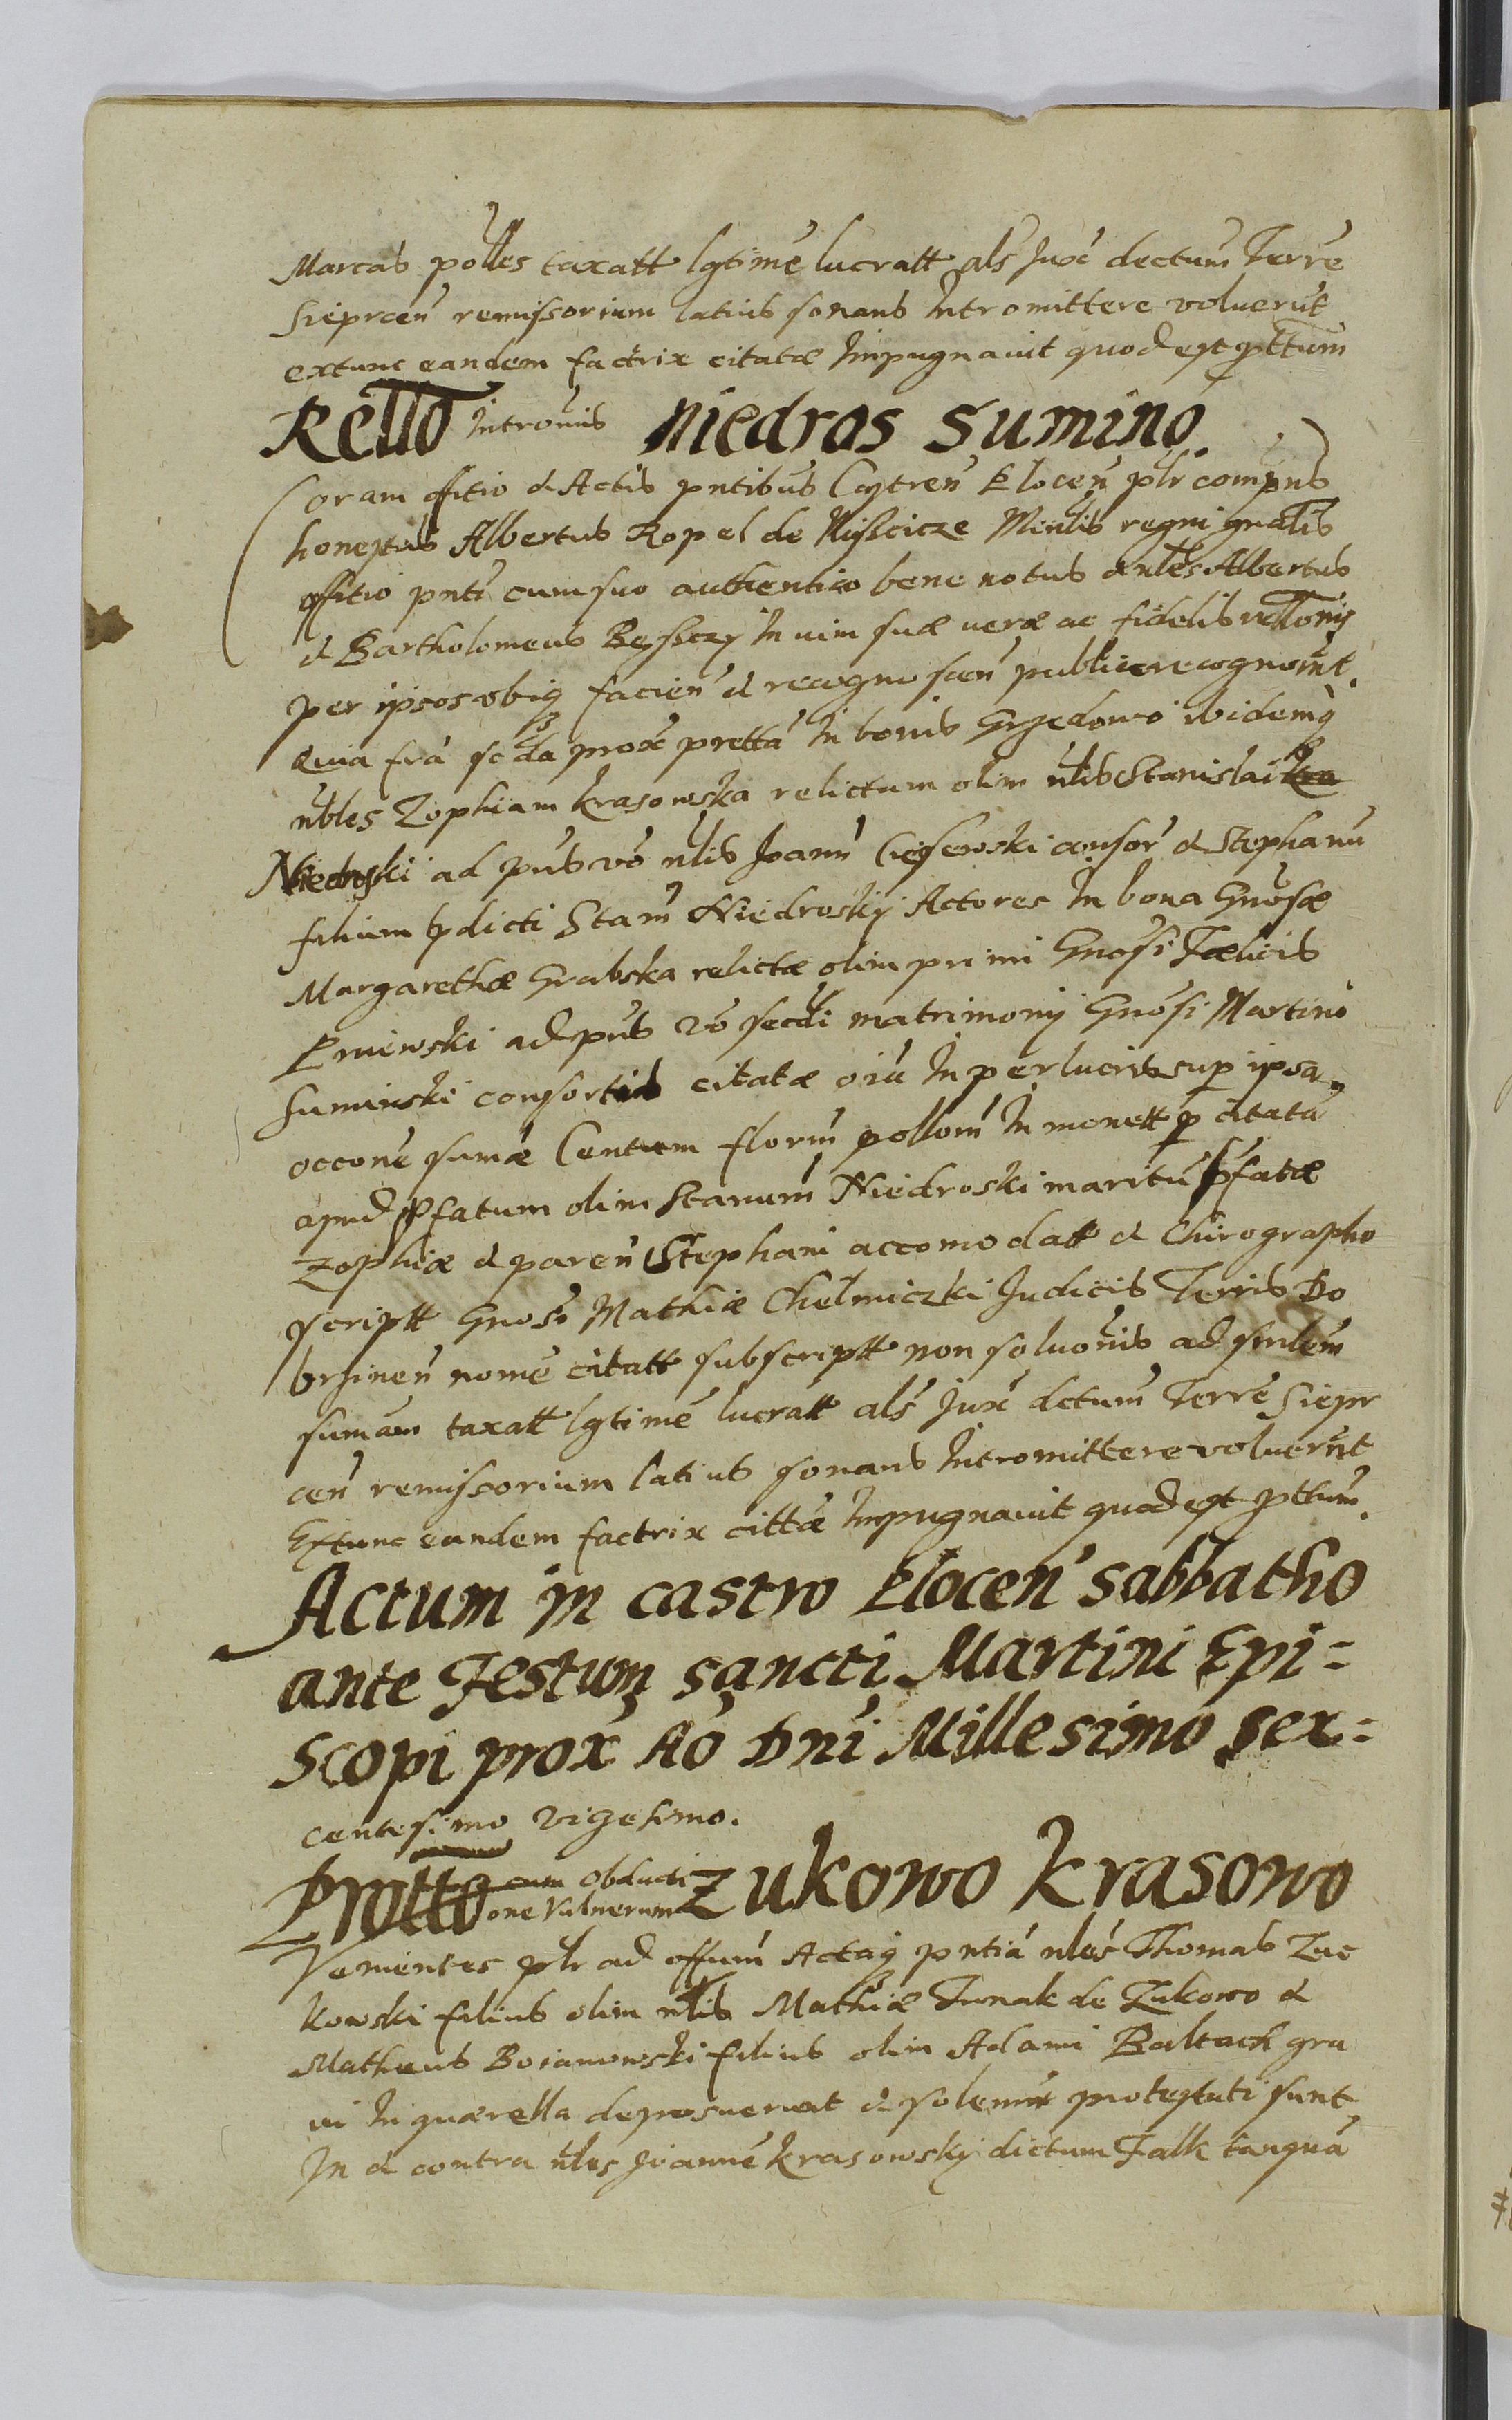 Marcas polles taxatt lgtime lucratt als Jux dectum Terre
Sieprcen remissorium latius sonans Intromittere voluerut
extunc eandem factrix citatæ Impugnavit quod est pttum
Rello Intromis Niedros Sumino
Coram offitio et Actis pntibus Captren Plocen plr compns
honestus Albertus Kopel de Nisscicze Minlis regni gnalis
offitio pnti cum suo authentico bene notus et nles Albertus
et Bartholomeus Bessczy In vim suæ veræ ac fidelis rellonis
per ipsos obig facien et recognoscen publice recognount.
Quia fra scda prox prettta In bonis Grzedowo ibidemq
nbles Zophiam Krasowska relictum olim nlis Stanislai
Niedroski ad pns vo nlis Joann Ciessewski consor et Stephanu
filium pdicti Stan Niedroskij Actores In bona Gnosæ
Margarethæ Grabska relictæ olim primi Gnosi Fælicis
Kmiewski ad pns vo secdi matrimonij Gnosi Martini
Suminski consortis citatæ oiu Inperlucris sup ipsa
occone sumæ Centum florm pollom In monett p citata
apud pfatum olim Stanum Niedroski maritu pfatæ
Zophiæ et paren Stephani accomodatt et Chirographo
scriptt Gnosi Mathiæ Chelmiczki Judicis Terris Do
brzinen nome citatt subscriptt non soluonis ad smlem
sumam taxatt lgtime lucratt als Jux dctum Terre Siepr
cen remissorium latius sonans Intromittere voluerut
Extunc eandem factrix cittæ Impugnavit quod est pttum.
Actum in castro Plocen sabbatho
ante Festum sancti Martini Epi=
scopi prox Ao Dni Millesimo sex=
centesimo vigesimo.
Protto cum Obducti
one Vulnerum Zukowo Krasowo
Venientes plr ad offum Actaq pntia nles Thomas Zu
kowski filius olim nlis Mathiæ Funak de Zukowo et
Matheus Boianowski filius olim Adami Baltach gra
vi In quærella deposuerunt et solemr protestati sunt
In et contra nles Joanne Krasowskj dictum Falk tanqua